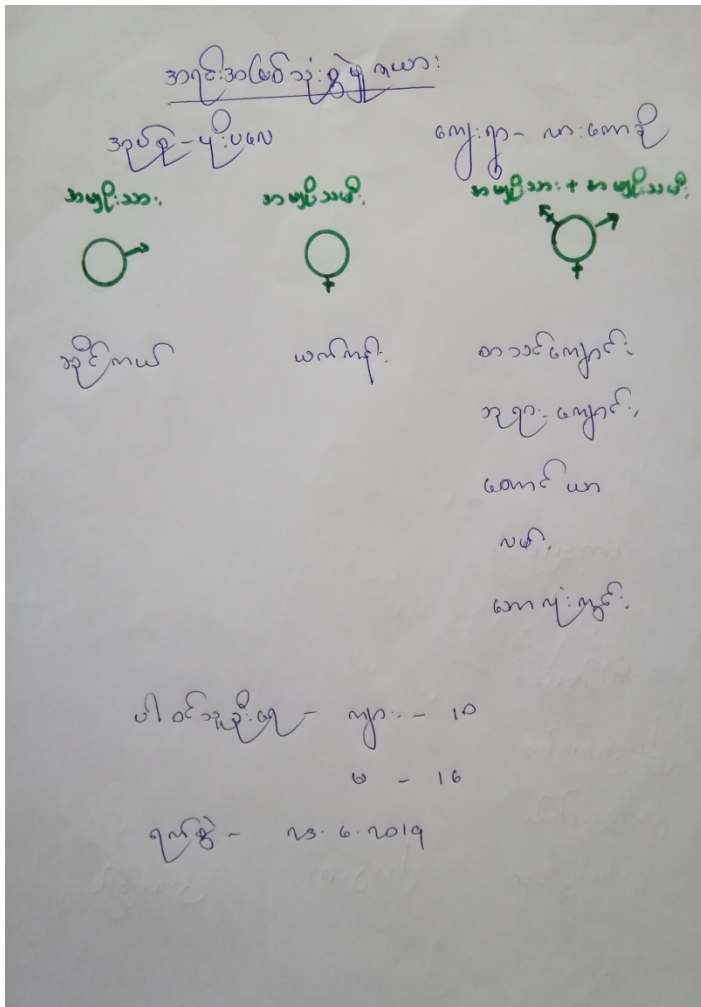 အရင်းအမြစ်သုံးစွဲမှု ဇယား
အုပ်စု - ပိုးပလေ ကျေးရွာ -
အမျိုးသား အမျိုးသမီး အမျိုးသား + အမျိုးသမီး
ဆိုင်ကယ် ယက်ကန်း စာသင်ကျောင်း
ဘုရားကျောင်း
တောင်ယာ
လမ်း
ဘောလုံးကွင်း
ပါဝင်သူဦးရေ - ကျား - ၁၀
မ - ၁၆
ရက်စွဲ - ၂၃.၆.၂၀၁၉